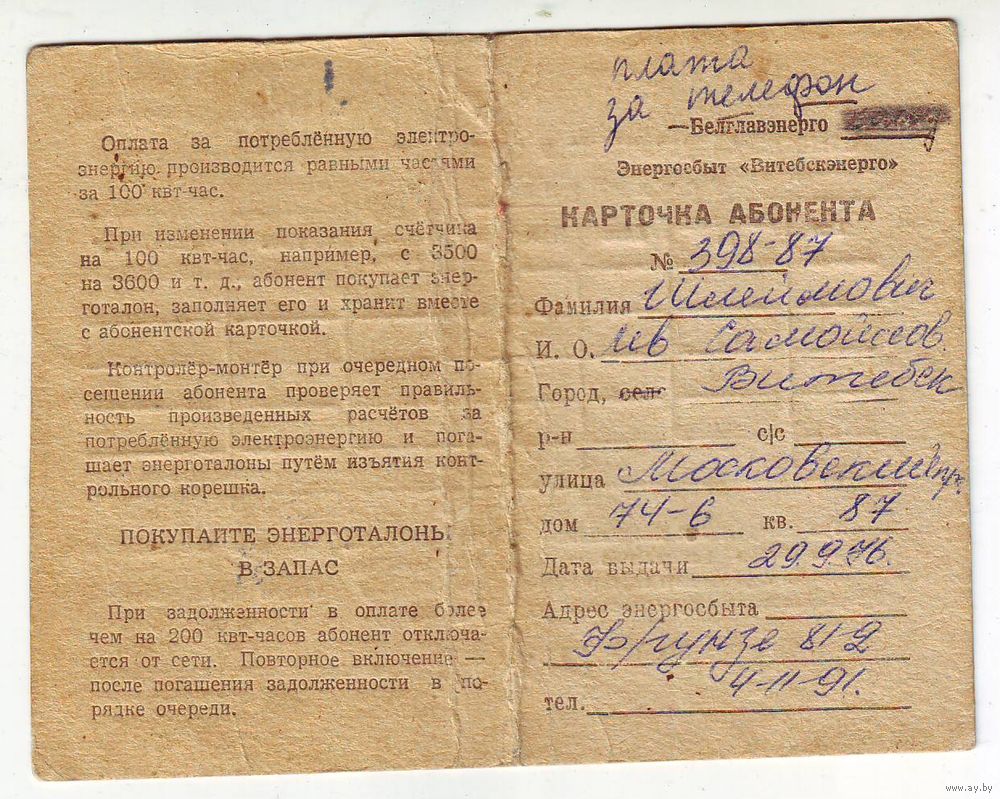 Оплата за потреблённую электро-
энергию производится равными частями
за 100 квт-час.
При изменении показания счётчика
на 100 квт-час, например, с 3500
на 3600 и т. д., абонент покупает энер-
готалон, заполняет его и хранит вместе
с абонентской карточкой.
Контролёр-монтёр при очередном по-
сещении абонента проверяет правиль-
ность произведенных расчётов за
потреблённую электроэнергию и пога-
шает энерготалоны путём изъятия конт-
рольного корешка.
ПОКУПАЙТЕ ЭНЕРГОТАЛОНЫ
В ЗАПАС
При задолженности в оплате более
чем на 200 квт-часов абонент отключа-
ется от сети. Повторное включение —
после погашения задолженности в по-
рядке очереди.
плата
за телефон
Белглавэнерго
Энергосбыт «Витебскэнерго»
КАРТОЧКА АБОНЕНТА
№ 398-87
Фамилия Шлеймович
И. О. Лев Самойлов.
Город, сел- Витебск
р-н с/с
улица Московский пр.
дом 74-6 кв. 87
Дата выдачи 29.9.76.
Адрес энергосбыта
Фрунзе 81-2
4-11-91.
тел.
www.ay.by